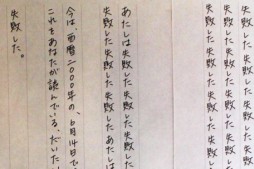 失敗した失敗した失敗した失敗した
失敗した失敗した失敗した失敗した
あたしは失敗した失敗した失敗した
失敗した失敗した失敗したあたしは
今は、西暦二〇〇〇年の、6月14日で
これをあなたが読んでいる、だいたい
失敗した。